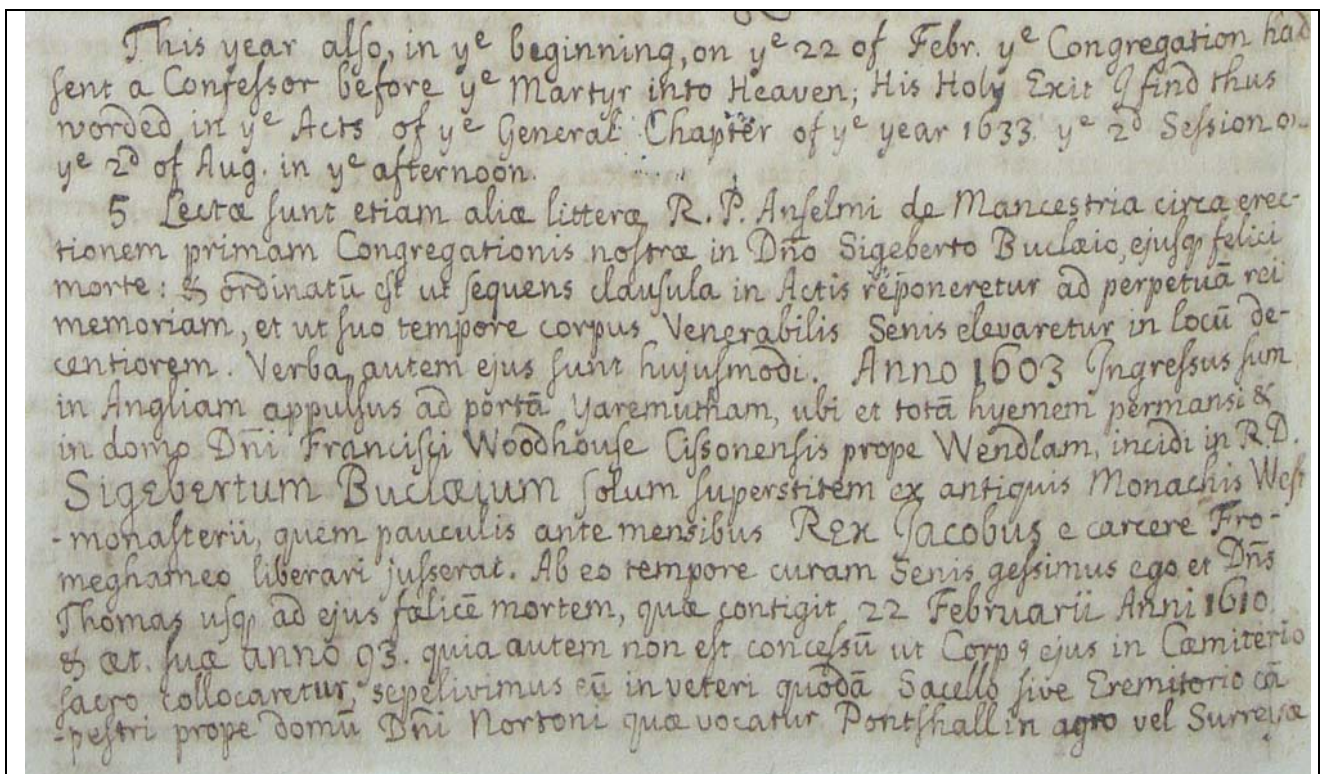 This year also, in yᵉ beginning, on yᵉ 22 of Febr. yᵉ Congregation had
sent a Confessor before yᵉ Martyr into Heaven; His Holy Exit I find thus
worded in yᵉ Acts of yᵉ General Chapter of yᵉ year 1633. yᵉ 2ᵈ Session on
yᵉ 2ᵈ of Aug. in yᵉ afternoon.
5 Lectæ sunt etiam aliæ litteræ R. P. Anselmi de Mancestria circa erec-
tionem primam Congregationis nostræ in Dño Sigeberto Buclæio, ejusqꝫ felici
morte: & ordinatū est ut sequens clausula in Actis reponeretur ad perpetuā rei
memoriam, et ut suo tempore corpus Venerabilis Senis elevaretur in locū de-
centiorem. Verba autem ejus sunt hujusmodi. Anno 1603 Ingressus sum
in Angliam appulsus ad portā Yaremutham, ubi et totā hyemem permansi &
in domo Dñi Francisci Woodhouse Cissonensis prope Wendlam, incidi in R. D.
Sigebertum Buclæium solum superstitem ex antiquis Monachis West
-monasterii, quem pauculis ante mensibus Rex Jacobus e carcere Fro-
meghameo liberari jusserat. Ab eo tempore curam Senis gessimus ego et Dñs
Thomas usqꝫ ad ejus fælicē mortem, quæ contigit 22 Februarii Anni 1610
& æt. suæ anno 93. quia autem non est concessū ut Corpꝰ ejus in Cœmiterio
sacro collocaretur, sepelivimus eū in veteri quodā Sacello sive Eremitorio cā
-pestri prope domū Dñi Nortoni quæ vocatur Pontshall in agro vel Surreiæ